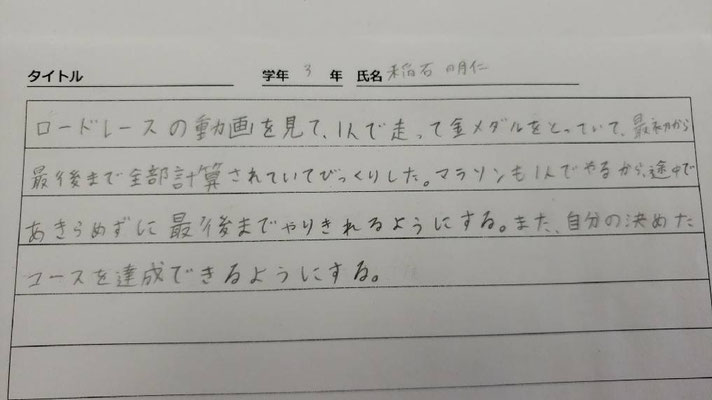 タイトル 学年 3 年 氏名 稲石 明仁
ロードレースの動画を見て、1人で走って金メダルをとっていて、最初から
最後まで全部計算されていてびっくりした。マラソンも1人でやるから、途中で
あきらめずに最後までやりきれるようにする。また、自分の決めた
コースを達成できるようにする。